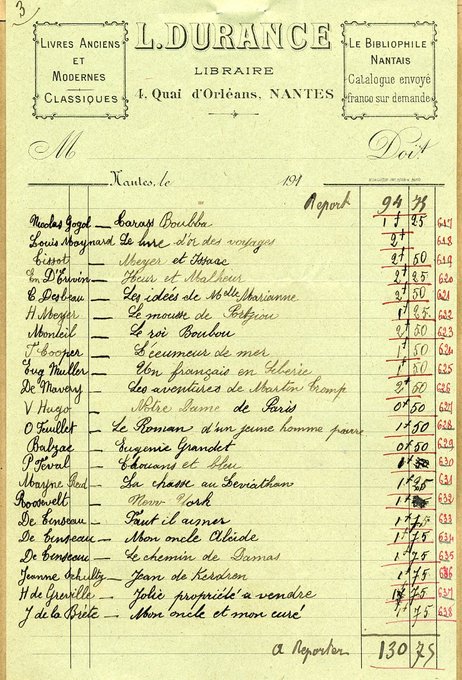 3
LIVRES ANCIENS
ET
MODERNES
CLASSIQUES
L. DURANCE
LIBRAIRE
4, Quai d'Orléans, NANTES
LE BIBLIOPHILE
NANTAIS
Catalogue envoyé
franco sur demande
M Doit
Nantes, le 191
Report 94 75
Nicolas Gogol — Tarass Boulba 1f 25 617
Louis Maynard Le livre d'or des voyages 2f 618
Cissot — Meyer et Isaac 2f 50 619
En D'Ervin — Heur et Malheur 2f 25 620
C. Desbeau — Les idées de Mdlle Marianne 2f 50 621
H Meyer — Le mousse de 1f 25 622
Monteil — Le roi Boubou 2f 50 623
F Cooper — L'écumeur de mer 1f 50 624
Eug Muller — Un français en Sibérie 1f 50 625
De Navery — Les aventures de Martin Tromp 2f 50 626
V Hugo — Notre Dame de Paris 0f 50 627
O Feuillet — Le Roman d'un jeune homme pauvre 1f 50 628
Balzac — Eugenie Grandet 0f 50 629
P Féval — Chouans et bleu 630
Mayne Reid — La chasse au Leviathan 1f 25 631
Roosevelt — New York 1f 632
De Cinseau — Faut il aimer 1f 75 633
De Cinseau — Mon oncle Alcide 1f 75 634
De Cinseau — Le chemin de Damas 1f 75 635
Jeanne Schultz — Jean de Kerdren 1f 75 636
H de Greville — Jolie propriété a vendre 1f 75 637
J de la Brète — Mon oncle et mon curé 1f 75 638
a Reporter 130 75